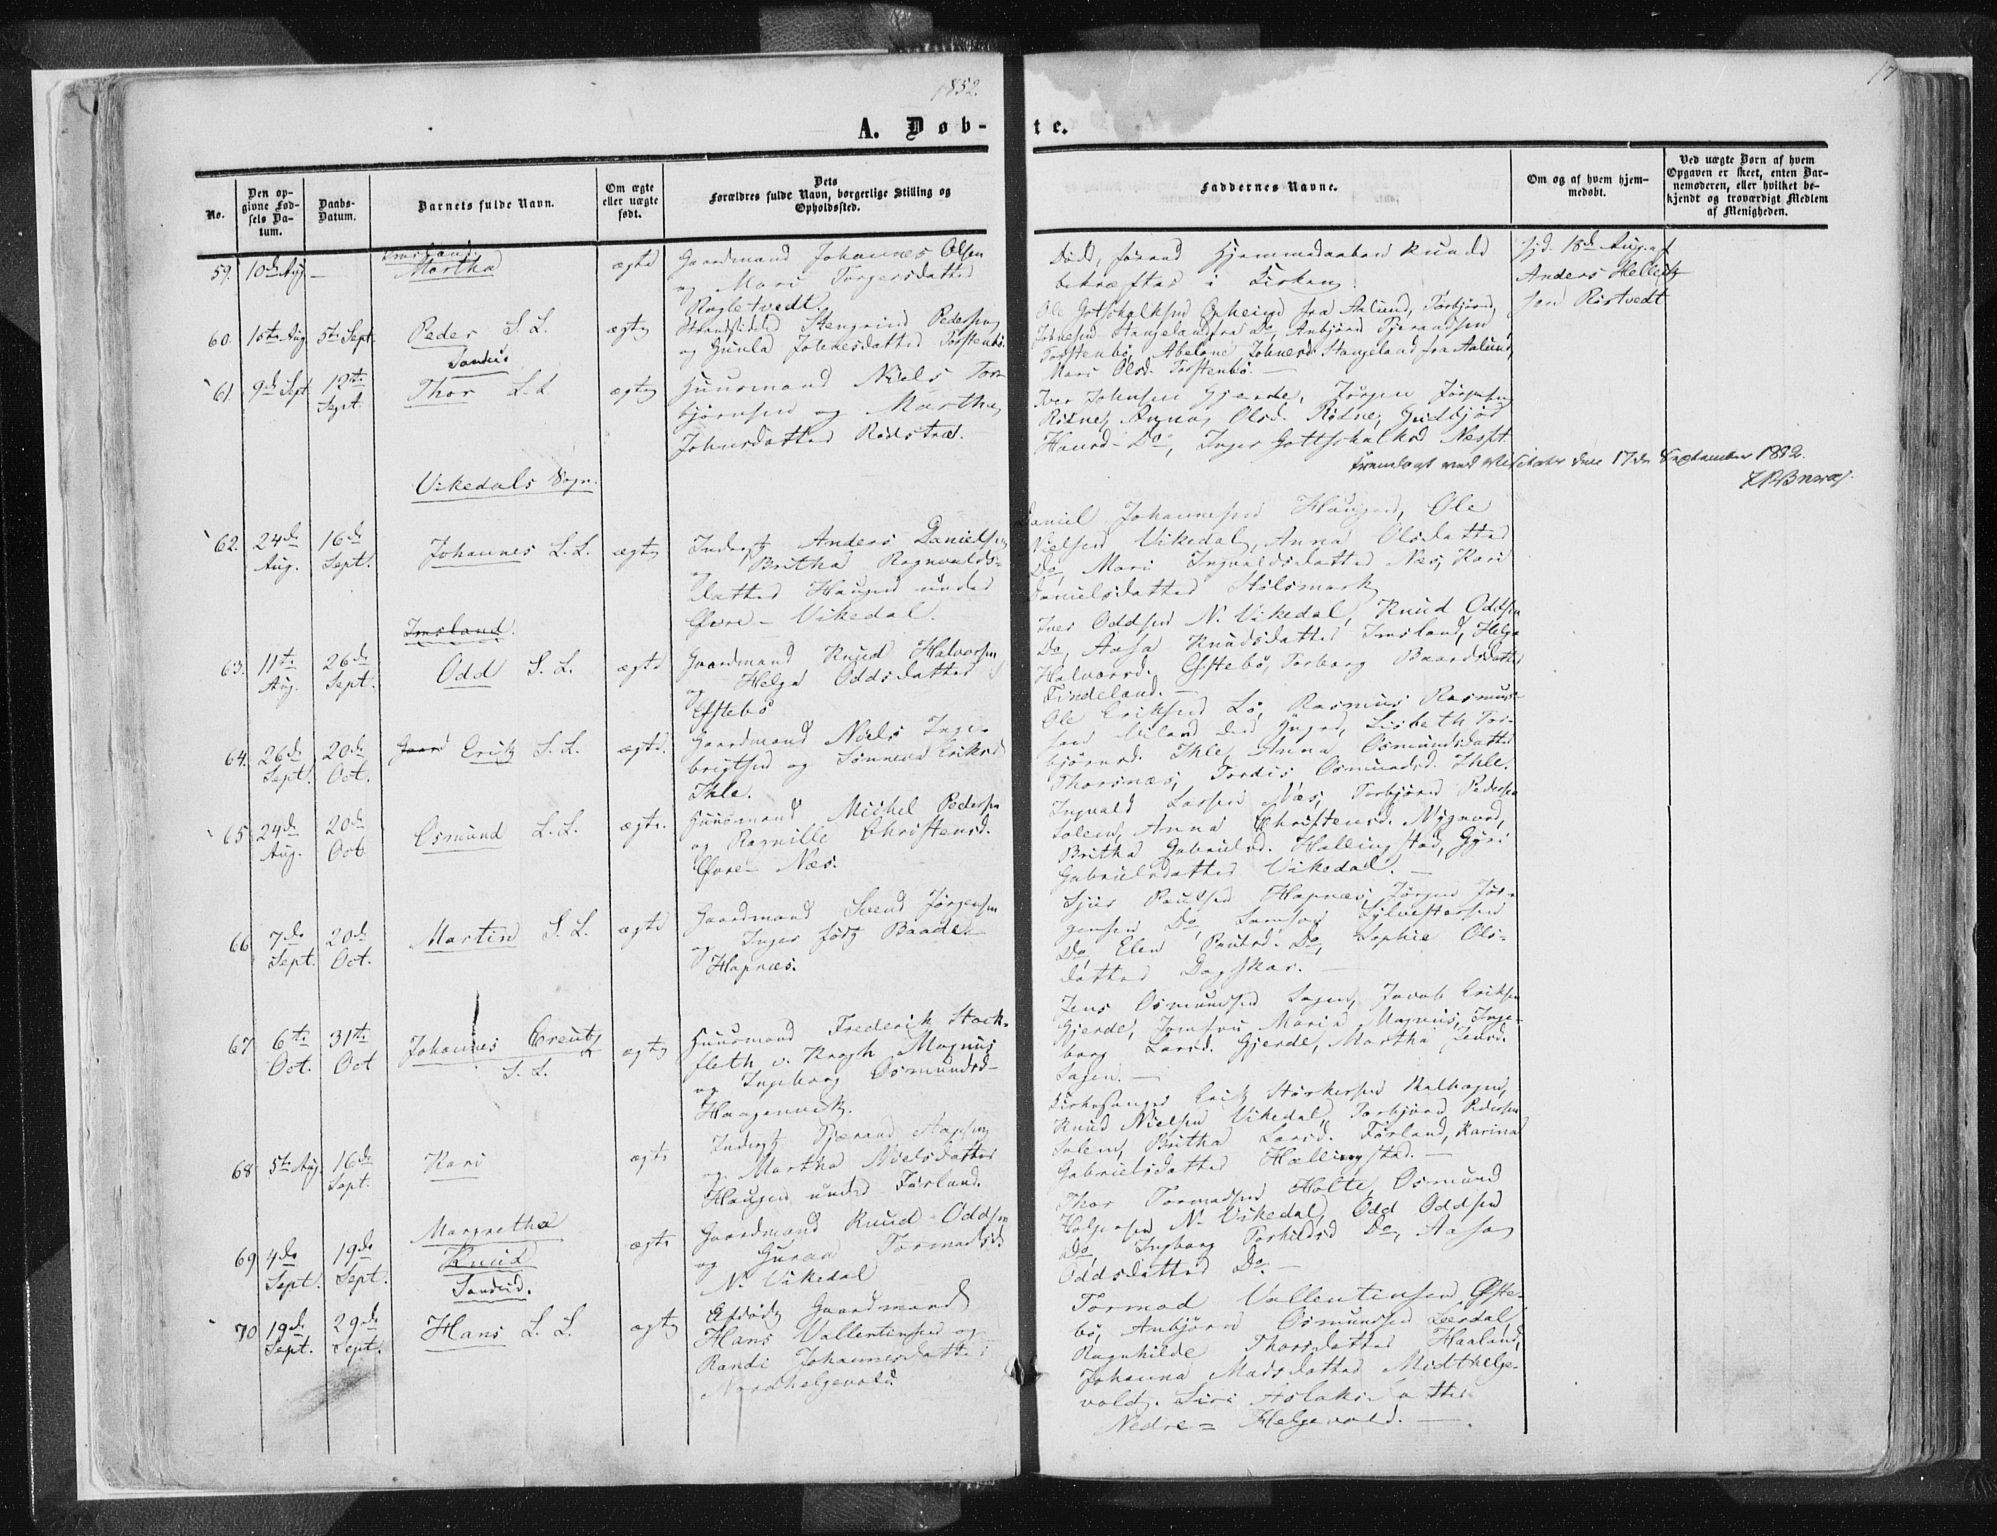 1852.
17
A. Døb-
te.
No.
Den op-
givne Fød-
sels Da-
tum.
Daabs-
Datum.
Barnets fulde Navn.
Om ægte
eller uægte
født.
Dets
Forældres fulde Navn, borgerlige Stilling og
Opholdssted.
Faddernes Navne.
Om og af hvem hjem-
medøbt.
Ved uægte Børn af hvem
Opgaven er skeet, enten Bar-
nemoderen, eller hvilket be-
kjendt og troværdigt Medlem
af Menigheden.
Imsland
59. 10de Aug. — Martha ægte Gaardmand Johannes Olsen
og Mari Torgersdatter
Rogletvedt.
Død, førend Hjemmedaaben kunde
bekræftes i Kirken.
hjd. 15de Aug. af
Anders Helleik-
sen Röstvedt
60. 15te Aug. 5te Sept. Peder S. L. ægte Strandsidder Stengrim Pedersen
og Gunla Johnesdatter Torstenbö
Ole Gotskalksen Opheim fra Aalund, Torbjörn
Johnesen Stangeland fra Do, Anbjörn Tjerandsen
Torstenbö, Abelone Johnesd. Stangeland fra Aalund,
Mari Olsd. Torstenbö. —
Sandeid
61. 9de Sept. 12te
Sept. Thor L. L. ægte Huusmand Niels Tor-
björnsen og Martha
Johnsdatter Rödstræ.
Iver Johnsen Gjerde, Jörgen Jörgensen
Rödne, Anna Olsd. Rödne, Gudbjör
Hansd. Do, Inger Gottskalksd. Nesse.
Fremlagt ved Visitats den 17de September 1852.
Vikedals Sogn.
62. 24de
Aug. 16de
Sept. Johannes L. L. ægte Inderst Anders Danielsen
og Britha Rognvalds-
datter Haugen under
Övre-Vikedal.
Daniel Johannesen Haugen, Ole
Nielsen Vikedal, Anna Olsdatter
Do, Mari Ingvaldsdatter Næs, Kari
Danielsdatter Stölsmark
Imsland.
63. 11te
Aug. 26de
Sept. Odd S. L. ægte Gaardmand Knud Halvorsen
og Helga Oddsdatter
Östebö
Iver Oddsen N. Vikedal, Knud Oddsen
Do, Aasa Knudsdatter Imsland, Helga
Halvorsd. Östebö, Torborg Baardsdatter
Tindeland. —
64. 26de
Sept. 20de
Oct. Gaard Erik S. L. ægte. Gaardmand Niels Inge-
brigtsen og Sönneva Eriksd.
Ihle.
Ole Eriksen Lö, Rasmus Rasmus-
sen Viland, Lisbeth Tor-
björnsd. Ihle, Anna Osmundsdatter
Thorsnæs, Tordis Osmundsd. Ihle.
65. 24de
Aug. 20de
Oct. Osmund L. L. ægte. Huusmand Michel Pedersen
og Ragnille Christensd.
Övre-Næs.
Ingvald Larsen Næs, Torbjörn Pedersen
Solem, Anna Christensd. Nygaard,
Britha Gabrielsd. Hallingstad, Gyri
Gabrielsdatter Vikedal. —
66. 7de
Sept. 20de
Oct. Martin S. L. ægte Gaardmand Svend Jörgensen
og Inger född Baade
Hapnæs.
Sjur Paulsen Hapnæs, Jörgen Jör-
gensen Do, Samson Sylvestersen
Do, Elen Paulsd. Do, Sophie Ols-
datter Dagskar. —
67. 6te
Oct. 31te
Oct Johannes Creutz
S. L. ægte Huusmand Frederik Stock-
fleth v. Krogh Magnus
og Ingeborg Osmundsd-
Haagenvik.
Jens Osmundsen Sagen, Jacob Eriksen
Gjerde, Jomfru Maria Magnus, Inge-
borg Larsd. Gjerde, Martha Jensd.
Sagen. —
68. 5te Aug. 16de
Sept. Kari ægte Inderst Tjerand Aagesen
og Martha Nielsdatter
Haugen under Förland.
Kirkesanger Erik Störkersen Malhagen,
Knud Nielsen Vikedal, Torbjörn Pedersen
Solem, Britha Larsd. Förland, Karina
Gabrielsdatter Hallingstad. —
Margretha
69. 4de
Sept. 19de
Sept. Knud ægte Gaardmand Knud Oddsen
og Guraa Tormodsd.
N. Vikedal
Thor Tormodsen Holte, Osmund
Holgersen N. Vikedal, Odd Oddsen
Do, Ingborg Torkildsd. Do, Aasa
Oddsdatter Do. —
Sandeid.
70. 19de
Sept. 29de
Sept. Hans L. L. ægte Afdöd Gaardmand
Hans Vallentinsen og
Randi Johannesdatter
Nordhelgevold
Tormod Vallentinsen Öste-
bö, Anbjörn Osmundsen Leerdal,
Ragnhilde Thorsdatter Haaland,
Johanna Madsdatter Midthelge-
vold, Siri Aslaksdatter
Nedre-Helgevold. —